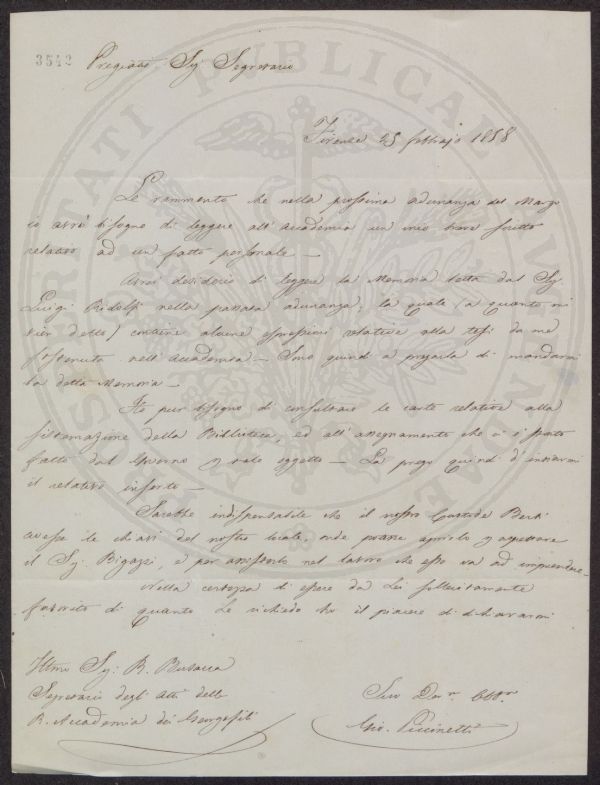 3542
Pregiatmo Sigr Segretario
Firenze 25 febbrajo 1858
Le rammento che nella prossima adunanza del Marzo
io avrò bisogno di leggere all' Accademia un mio breve scritto
relativo ad un fatto personale —
Avrei desiderio di leggere la Memoria letta dal Sigr
Luigi Ridolfi nella passata adunanza, la quale (a quanto mi
vien detto) contiene alcune espressioni relative alla tesi da me
sostenuta nell' Accademia — Sono quindi a pregarla di mandarmi
la detta Memoria —
Ho pur bisogno di consultare le carte relative alla
sistemazione della Biblioteca, ed all' assegnamento che ci è stato
fatto dal Governo tale oggetto — La prego quindi d' inviarmi
il relativo inserto —
Sarebbe indispensabile che il nostro Custode
avesse le chiavi del nostro locale, onde potesse aprirlo
il Sigr Bigazzi, e per assisterlo nel lavoro che esso va ad imprendere —
Nella certezza di essere da Lei sollecitamente
favorito di quanto Le richiedo ho il piacere di dichiararmi
Illmo Sigr R. Busacca
Segretario degli Atti della
R. Accademia dei Georgofili
Suo Devmo Obbmo
Gio.
PROSPERITATI PUBLICAE AUGENDAE